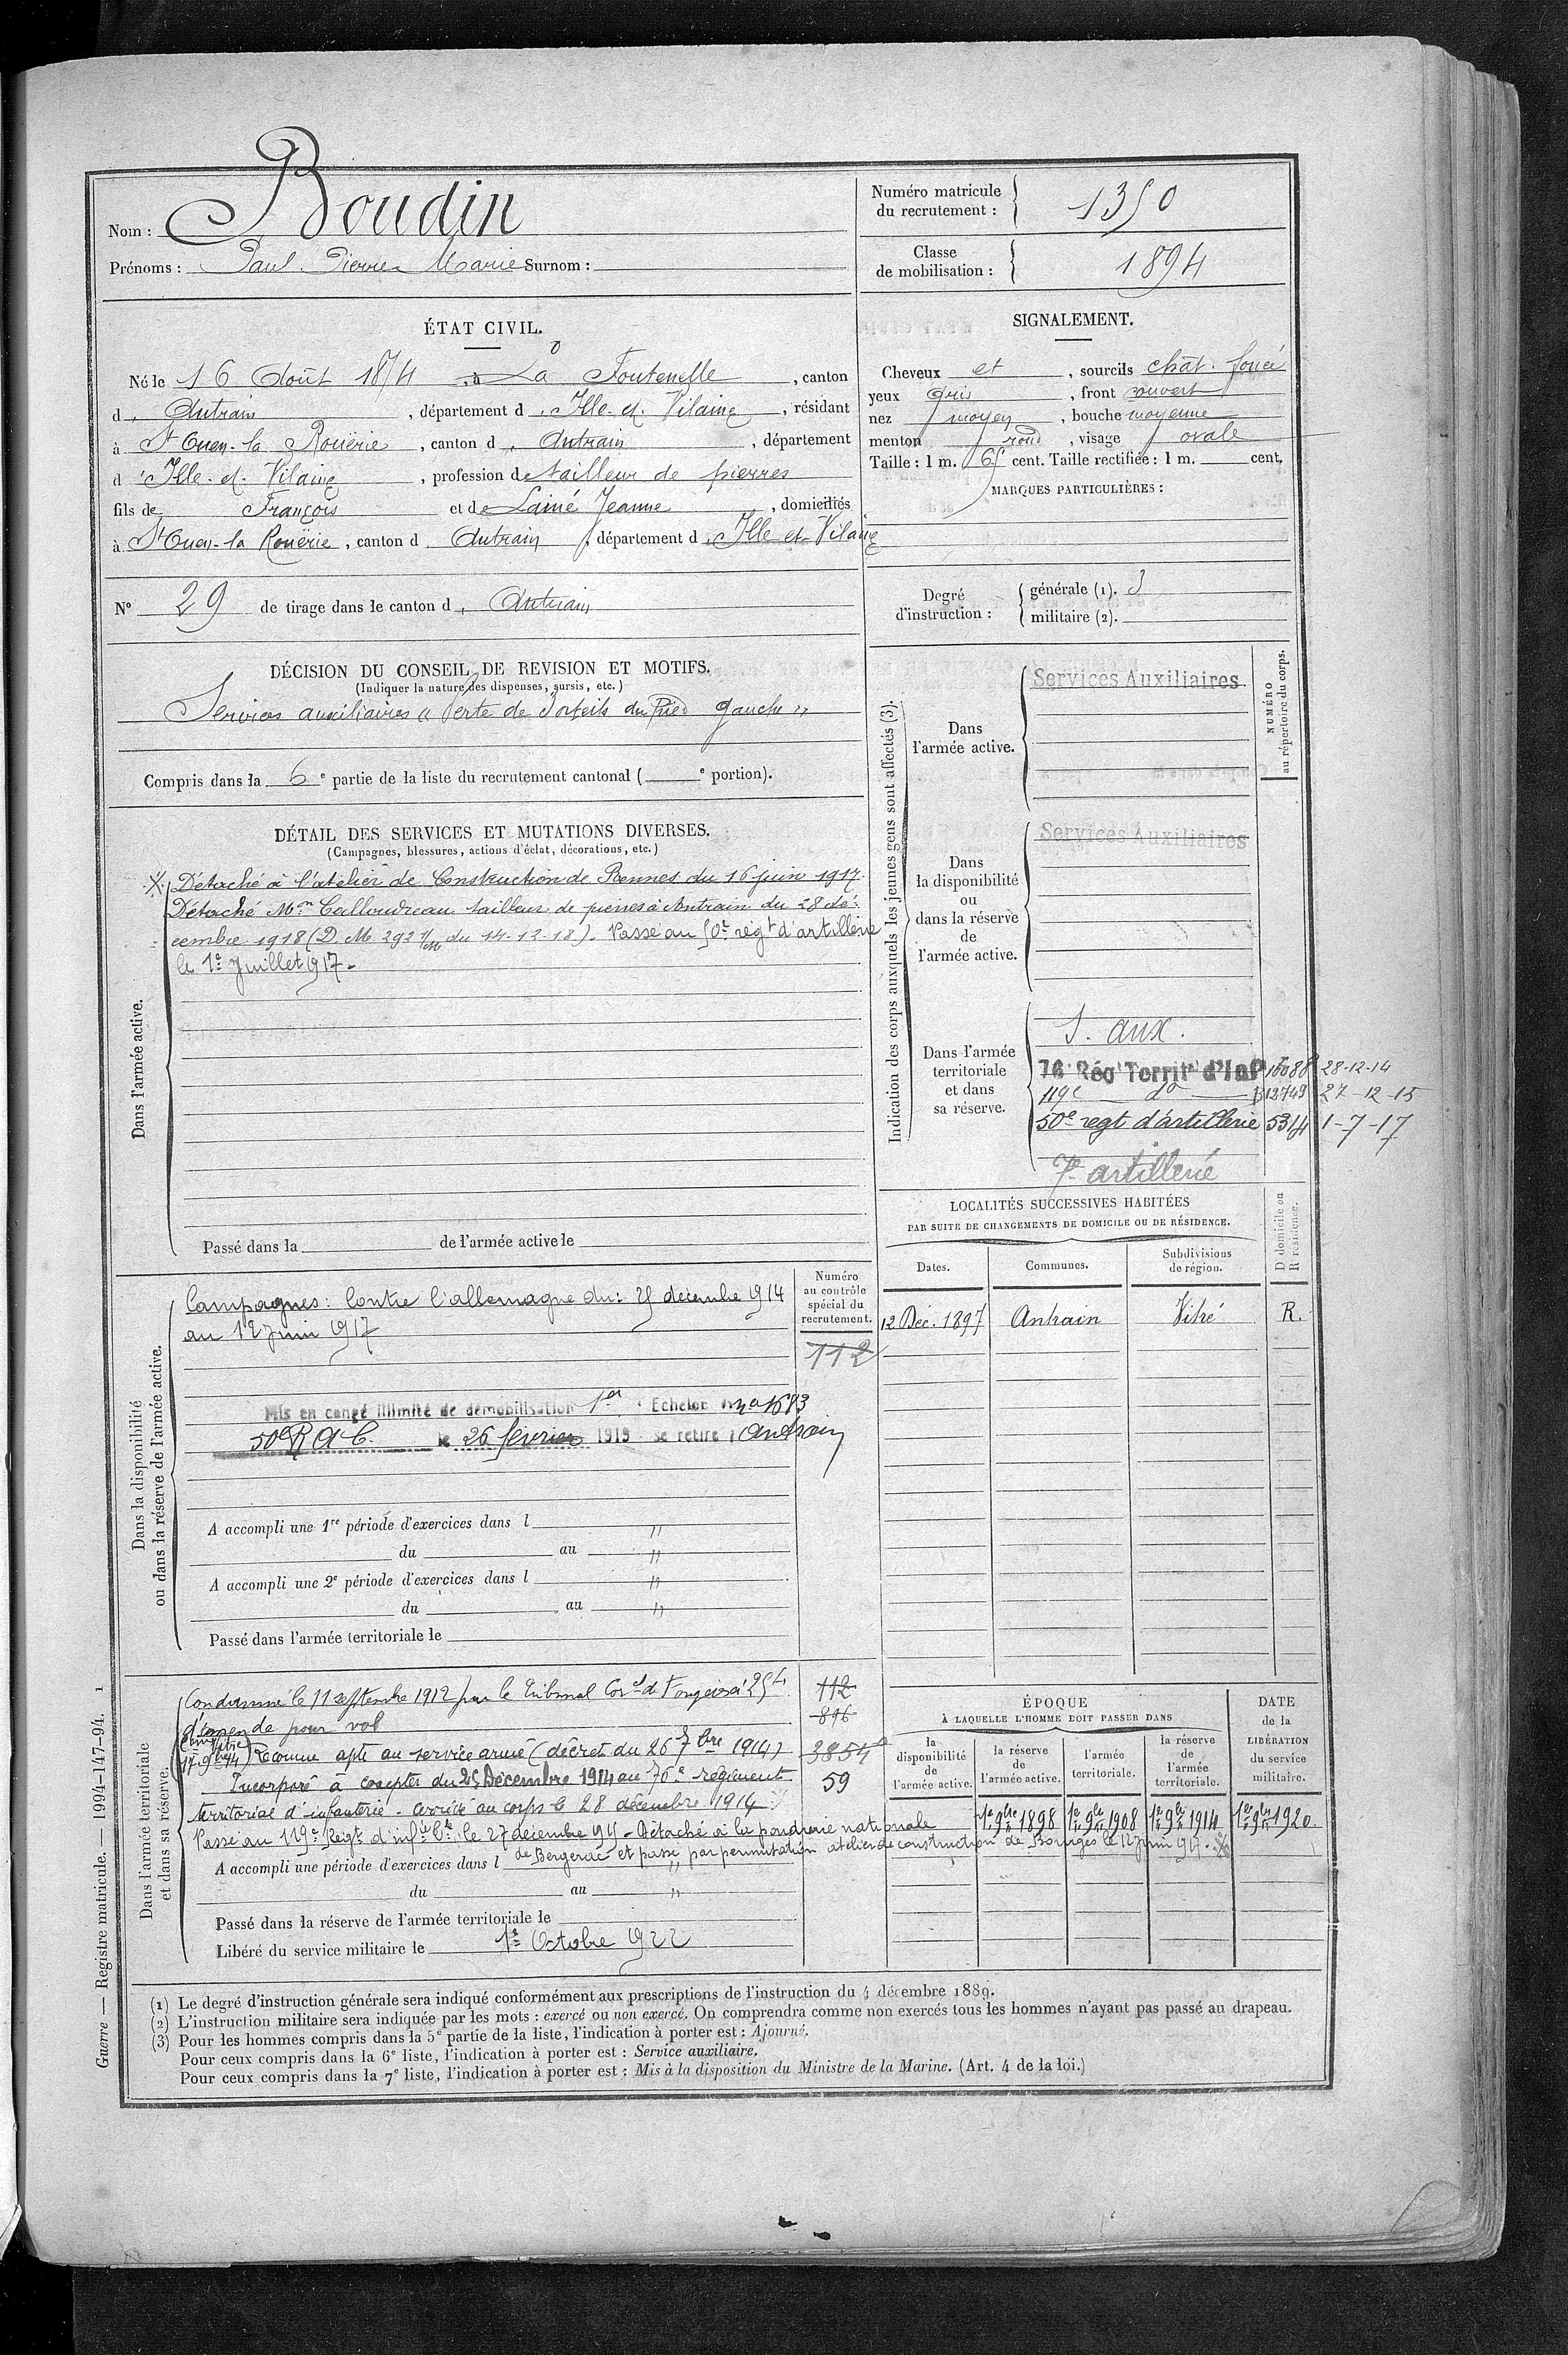 Nom : Boudin
Prénoms : Paul Pierre Marie Surnom :
Numéro matricule du recrutement : 1350
Classe de mobilisation : 1894
ÉTAT CIVIL.
Né le 16 Août 1874, à La Fontenelle, canton
d'Antrain, département d'Ille-et-Vilaine, résidant
à St Ouen-la Rouërie, canton d'Antrain, département
d'Ille-et-Vilaine, profession de tailleur de pierres
fils de François et de Lainé Jeanne, domiciliés
à St Ouen-la Rouërie, canton d'Antrain, département d'Ille et Vilaine
N° 29 de tirage dans le canton d'Antrain
SIGNALEMENT.
Cheveux et, sourcils chât. foncé
yeux gris, front couvert
nez moyen, bouche moyenne
menton rond, visage ovale
Taille : 1 m. 65 cent. Taille rectifiée : 1 m. cent.
MARQUES PARTICULIÈRES :
Degré d'instruction : générale (1). 3
militaire (2).
DÉCISION DU CONSEIL DE REVISION ET MOTIFS.
(Indiquer la nature des dispenses, sursis, etc.)
Services auxiliaires « Perte de 2 orteils du Pied gauche »
Compris dans la 6e partie de la liste du recrutement cantonal ( e portion).
DÉTAIL DES SERVICES ET MUTATIONS DIVERSES.
(Campagnes, blessures, actions d'éclat, décorations, etc.)
Dans l'armée active.
Détaché à l'atelier de Construction de Rennes du 16 juin 1917.
Détaché Mon tailleur de pierres à Antrain du 28 dé-
cembre 1918 (D. M. du 14-12-18). Passé au 50e régt d'artillerie
le 1er Juillet 1917.
Passé dans la de l'armée active le
Indication des corps auxquels les jeunes gens sont affectés (3).
NUMÉRO au répertoire du corps.
Dans l'armée active.
Services Auxiliaires
Dans la disponibilité ou dans la réserve de l'armée active.
Services Auxiliaires
Dans l'armée territoriale et dans sa réserve.
S. aux.
76 Rég Territ' d'Inf 16088 28-12-14
119e do B12749 27-12-15
50e regt d'artillerie 5314 1-7-17
7e artillerie
LOCALITÉS SUCCESSIVES HABITÉES
PAR SUITE DE CHANGEMENTS DE DOMICILE OU DE RÉSIDENCE.
Dates. Communes. Subdivisions de région. D domicile ou R résidence.
12 Déc. 1897 Antrain Vitré R.
Dans la disponibilité ou dans la réserve de l'armée active.
Numéro au contrôle spécial du recrutement.
112
Campagnes : Contre l'allemagne du : 25 décembre 1914
au 12 juin 1917
Mis en congé illimité de démobilisation 1er Echelon no 1673
50e R A C. le 26 février 1919 se retire à Antrain
A accompli une 1re période d'exercices dans l "
du au "
A accompli une 2e période d'exercices dans l "
du au "
Passé dans l'armée territoriale le
Dans l'armée territoriale et dans sa réserve.
Condamné le 11 septembre 1912 par le tribunal Corel de Fougères à 25 f
d'amende pour vol
17-9bre 14) Reconnu apte au service armé (décret du 26 7bre 1914)
Incorporé à compter du 25 Décembre 1914 au 76e régiment
territorial d'infanterie. arrivé au corps le 28 décembre 1914.
Passé au 119e Régt d'infie tle le 27 décembre 915. Détaché à la poudrerie nationale
de Bergerac et passé par permutation atelier de construction de Bourges le 12 juin 917.
112
896
3854
59
A accompli une période d'exercices dans l "
du au "
Passé dans la réserve de l'armée territoriale le
Libéré du service militaire le 1er Octobre 1922
ÉPOQUE
À LAQUELLE L'HOMME DOIT PASSER DANS
la disponibilité de l'armée active.
la réserve de l'armée active.
l'armée territoriale.
la réserve de l'armée territoriale.
DATE de la LIBÉRATION du service militaire.
1er 9bre 1898 1er 9bre 1908 1er 9bre 1914 1er 9bre 1920
(1) Le degré d'instruction générale sera indiqué conformément aux prescriptions de l'instruction du 4 décembre 1889.
(2) L'instruction militaire sera indiquée par les mots : exercé ou non exercé. On comprendra comme non exercés tous les hommes n'ayant pas passé au drapeau.
(3) Pour les hommes compris dans la 5e partie de la liste, l'indication à porter est : Ajourné.
Pour ceux compris dans la 6e liste, l'indication à porter est : Service auxiliaire.
Pour ceux compris dans la 7e liste, l'indication à porter est : Mis à la disposition du Ministre de la Marine. (Art. 4 de la loi.)
Guerre — Registre matricule. — 1994-147-94. 1